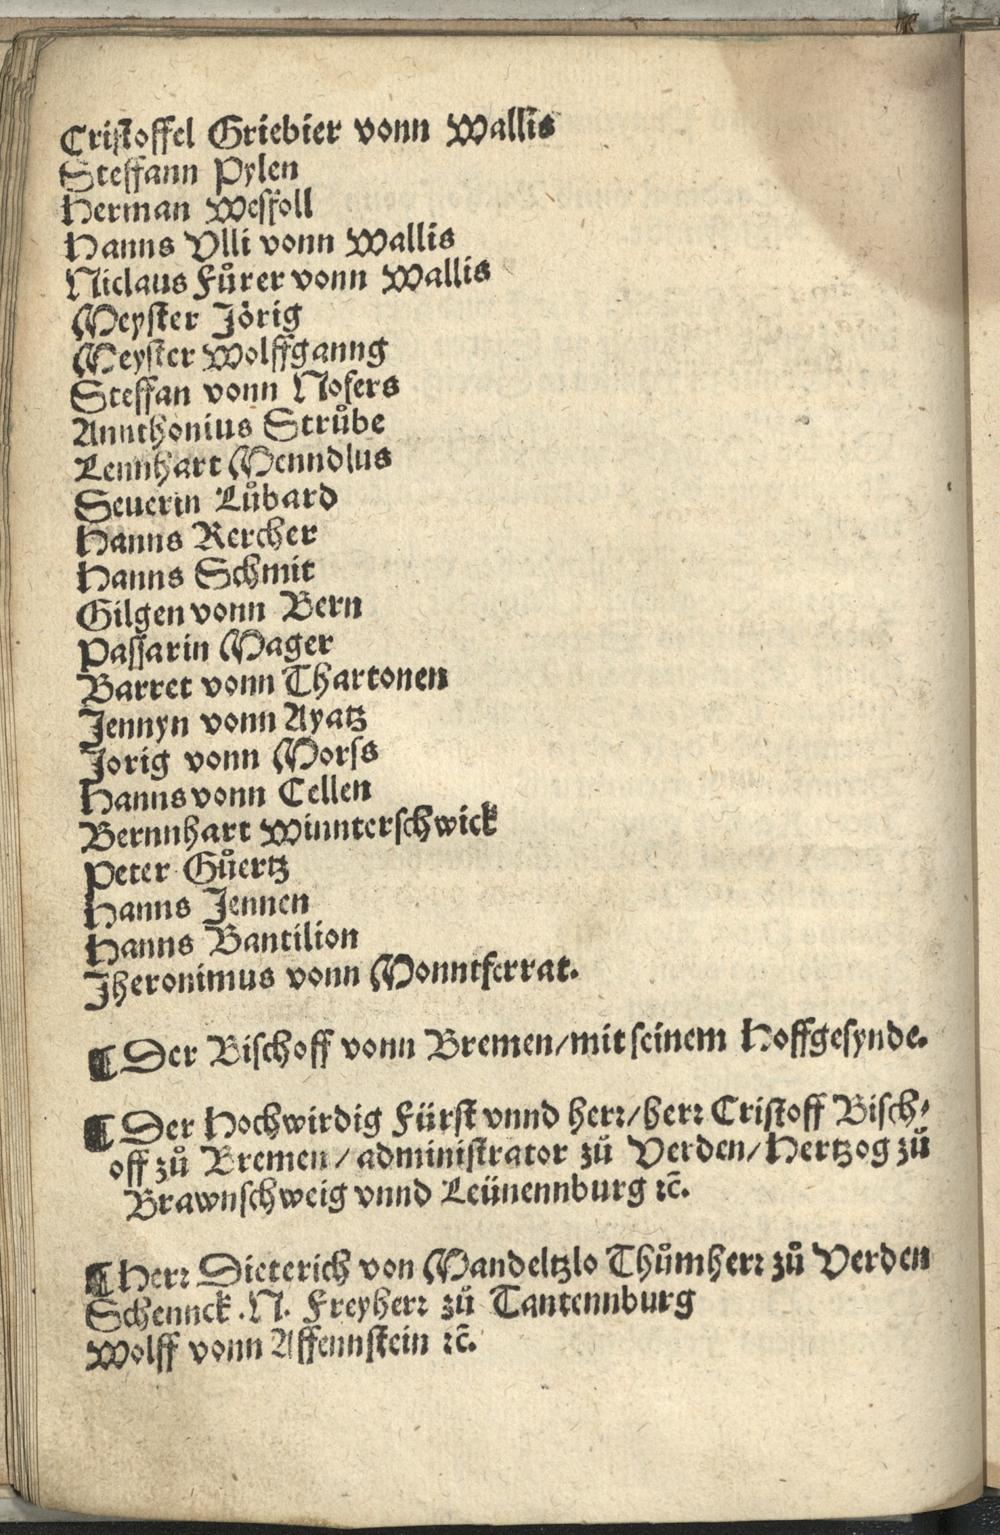 Cristoffel Griebier vonn Wallis
Steffann Pylen
Herman Wesfoll
Hanns Vlli vonn Wallis
Niclaus Fůrer vonn Wallis
Meyster Jörig
Meyster Wolffganng
Steffan vonn Nofers
Annthonius Strůbe
Lennhart Menndlus
Seuerin Lůbard
Hanns Rercher
Hanns Schmit
Gilgen vonn Bern
Passarin Mager
Barret vonn Thartonen
Jennyn vonn Ayatz
Jorig vonn Morss
Hanns vonn Cellen
Bernnhart Winnterschwick
Peter Gůertz
Hanns Jennen
Hanns Bantilion
Jheronimus vonn Monntferrat.
¶ Der Bischoff vonn Bremen/mit seinem Hoffgesynde.
¶ Der Hochwirdig Fürst vnnd herr/herr Cristoff Bisch⸗
off zů Bremen/administrator zů Verden/Hertzog zů
Brawnschweig vnnd Leünennburg ꝛc̄.
¶ Herr Dieterich von Mandeltzlo Thůmherr zů Verden
Schennck .N. Freyherr zů Tantennburg
Wolff vonn Affennstein ꝛc̄.